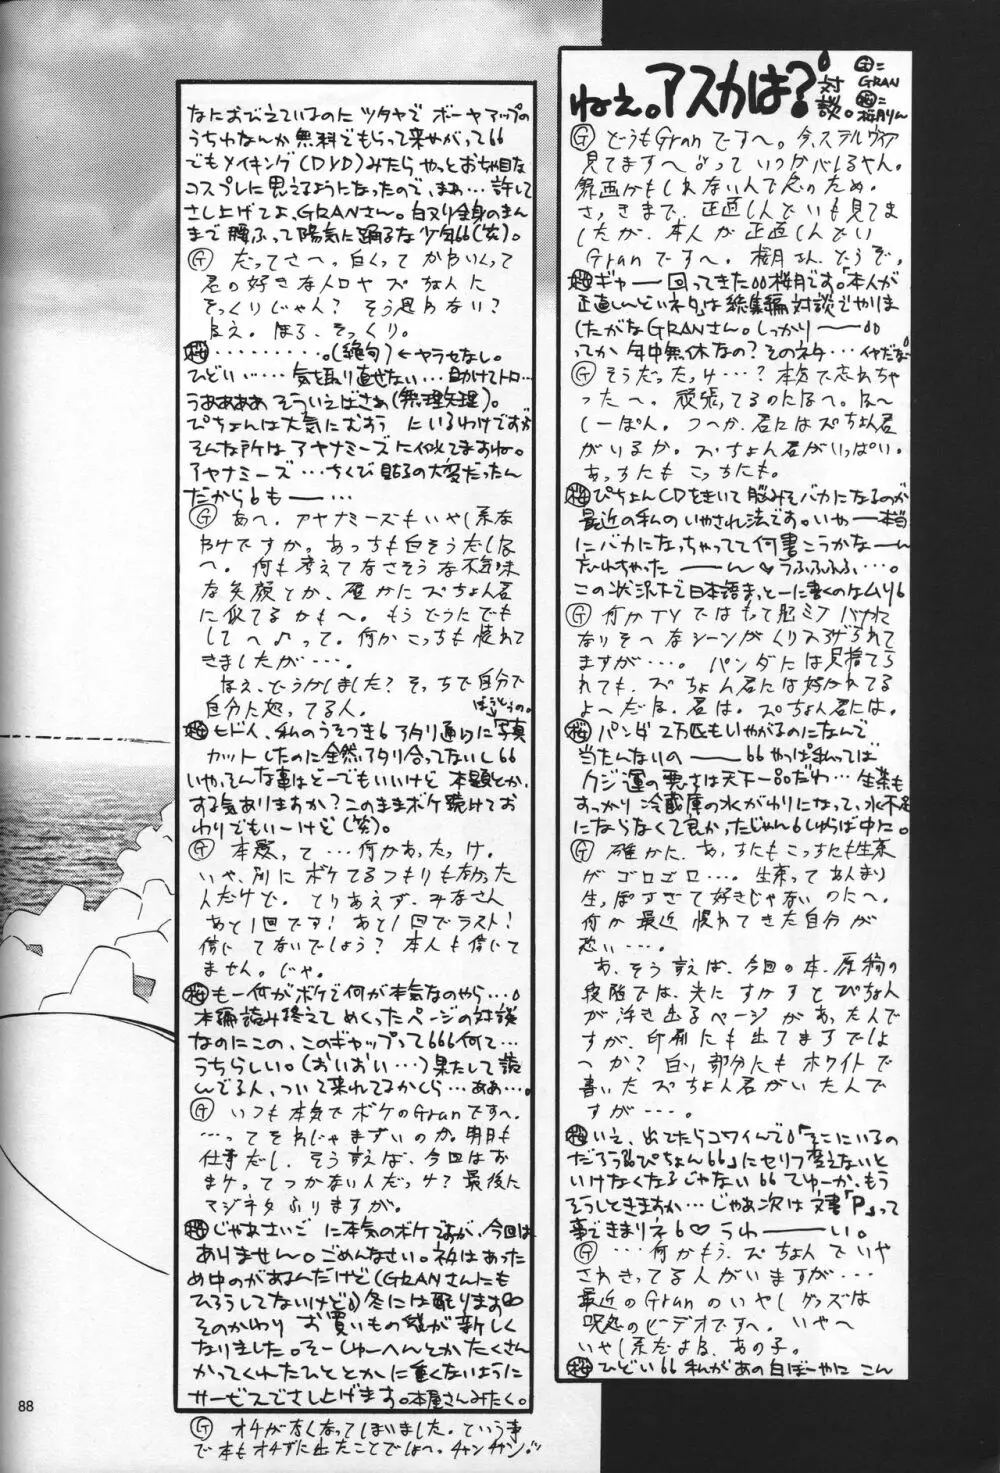 ねぇ。アスカは?
対談。
Ⓖ=GRAN
桜=桜月りん
Ⓖ どうもGranですへ。今、ステルヴィア
見てますへよっていつかバレるやん。
さっきまで、正直しんどいも見てま
したが、本人が正直しんどい
Granですへ。桜月さん、どうぞ。
桜 ギャー 回ってきた 桜月です。「本人が
正直しんどい」ネタは総集編対談でやりま
したがなGRANさん。しっかりー
ってか 年中無休なの?そのネタ…イヤだな
Ⓖ そうだったっけ…?本気で忘れちゃ
ったへ。頑張ってるのになへ。な〜
しーぽん。つへか、君にはぴちょん君
がいるか。ぴちょん君がいっぱい。
あっちにもこっちにも。
桜 ぴちょんCDをきいて脳みそバカになるのが
最近の私のいやされ法です。いやー本当
にバカになっちゃってて何書こうかなーん
忘れちゃったーん♡うふふふふ…。
この状況下で日本語まっとーに書くのはムリ
Ⓖ 何かTVではもって脳ミソバカに
なりそへなシーンがくり広げられて
ますが…。パンダには見捨てら
れても、ぴちょん君には好かれてる
よへだな、君は。ぴちょん君には。
桜 パンダ2万匹もいやがるのになんで
当たんないのー やっぱ私ってば
クジ運の悪さは天下一品だわ…生茶も
すっかり冷蔵庫の水がわりになって、水不足
にならなくて良かったじゃん しゅらば中に。
Ⓖ 確かに、あっちにもこっちにも生茶
がゴロゴロ…。生茶ってあんまり
生っぽすぎて好きじゃないのにへ。
何か最近慣れてきた自分が
恐い…。
あ、そう言えば、今回の本、原稿の
段階では、光にすかすとぴちょん
が浮き出るページがあったんで
すが、印刷にも出てますでしょ
へか?白い部分にもホワイトで
書いたぴちょん君がいたんで
すが…。
桜 いえ、出てたらコワイんで「そこにいるの
だろう ぴちょん」にセリフ変えないと
いけなくなるじゃない てゆーか、もう
そうしときますか…じゃあ次は文書「P」って
事できまりネ♡うわーーい。
Ⓖ …何かもう、ぴちょんでいや
されきってる人がいますが…
最近のGranのいやしグッズは
呪怨のビデオですへ。いやへ
いやし系だよね、あの子。
桜 ひどい 私があの白ぼーやに こん
なにおびえているのに ツタヤで ボーヤアップの
うちわなんか無料でもらって来やがって
でもメイキング(DVD)みたら、やっとおちゃ目な
コスプレに思えるようになったので、まぁ…許して
さし上げてよ、GRANさん。白ヌリ全身のまん
まで腰ふって陽気に踊るな少年(笑)。
Ⓖ だってさへ。白くってかわいくって
君の好きな人ロヤ ぴちょんに
そっくりじゃん?そう思わない?
ねえ。ほら、そっくり。
桜 ………。(絶句)←ヤラセなし。
ひどい…… 気を取り直せない…助けてトロ…
うああああ そういえばさぁ(無理矢理)。
ぴちょんは大気にむおう にいるわけですが
そんな所はアヤナミーズに似てますね。
アヤナミーズ…ちくび貼るの大変だったん
だから も ー…
Ⓖ あへ、アヤナミーズもいやし系な
わけですか。あっちも白そうだしな
へ。何も考えてなさそうな不気味
な笑顔とか、確かにぴちょん君
に似てるかもへ。もうどうにでも
してへ♪って。何かこっちも慣れて
きましたが…。
なえ、どうかしました?そっちで自分で
自分に怒ってる人。
桜 ヒドイ、私のうそつき アタリ通りに写真
カットしたのに全然アタリ合ってないし
いや、そんな事はどーでもいいけど 本題とか、
する気ありますか?このままボケ続けてお
わりでもいーけど(笑)。
Ⓖ 本題って…何かあったっけ。
いや、別にボケてるつもりもなかった
んだけど。とりあえず、みなさん
あと1回です!あと1回でラスト!
信じてないでしょう?本人も信じて
ません。じゃ。
桜 もー何がボケで何が本気なのやら…
本編読み終えてめくったページの対談
なのにこの、このギャップって 何て…
うちらしい。(おいおい…)果たして読
んでる人、ついて来れてるかしら…ああ…。
Ⓖ いつも本気でボケのGranですへ。
…ってそれじゃまずいのか。明日も
仕事だし。そう言えば、今回はお
まけってつかないんだっけ?最後に
マジネタふりますが。
桜 じゃあさいごに本気のボケですが、今回は
ありません。ごめんなさい。ネタはあった
め中のがあるんだけど(GRANさんにも
ひろうしてないけど)冬には配ります
そのかわり お買いもの袋が新しく
なりました。そーしゅーへんとかたくさん
かってくれたひととかに重くないように
サービスでさし上げます。本屋さんみたく。
Ⓖ オチがなくなってしまいました。という事
で本もオチずに出たことでしょへ。チャンチャン。
88